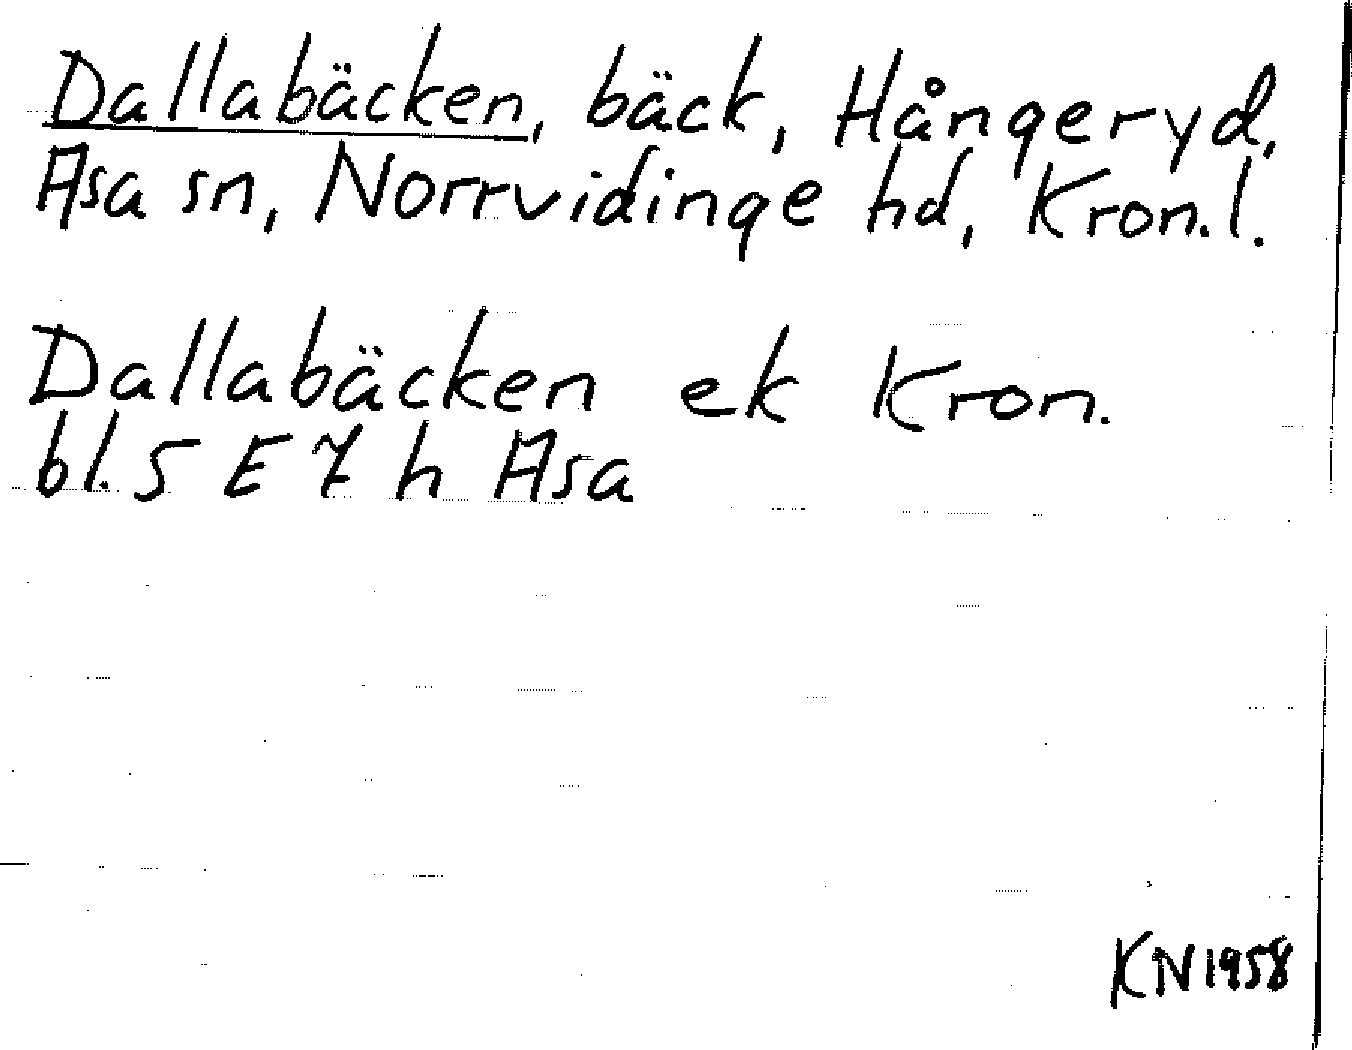 Dallabäcken, bäck, Hångeryd,
Asa sn, Norrvidinge hd, Kron.l.
Dallabäcken ek Kron.
bl. 5 E 7 h Asa
KN 1958